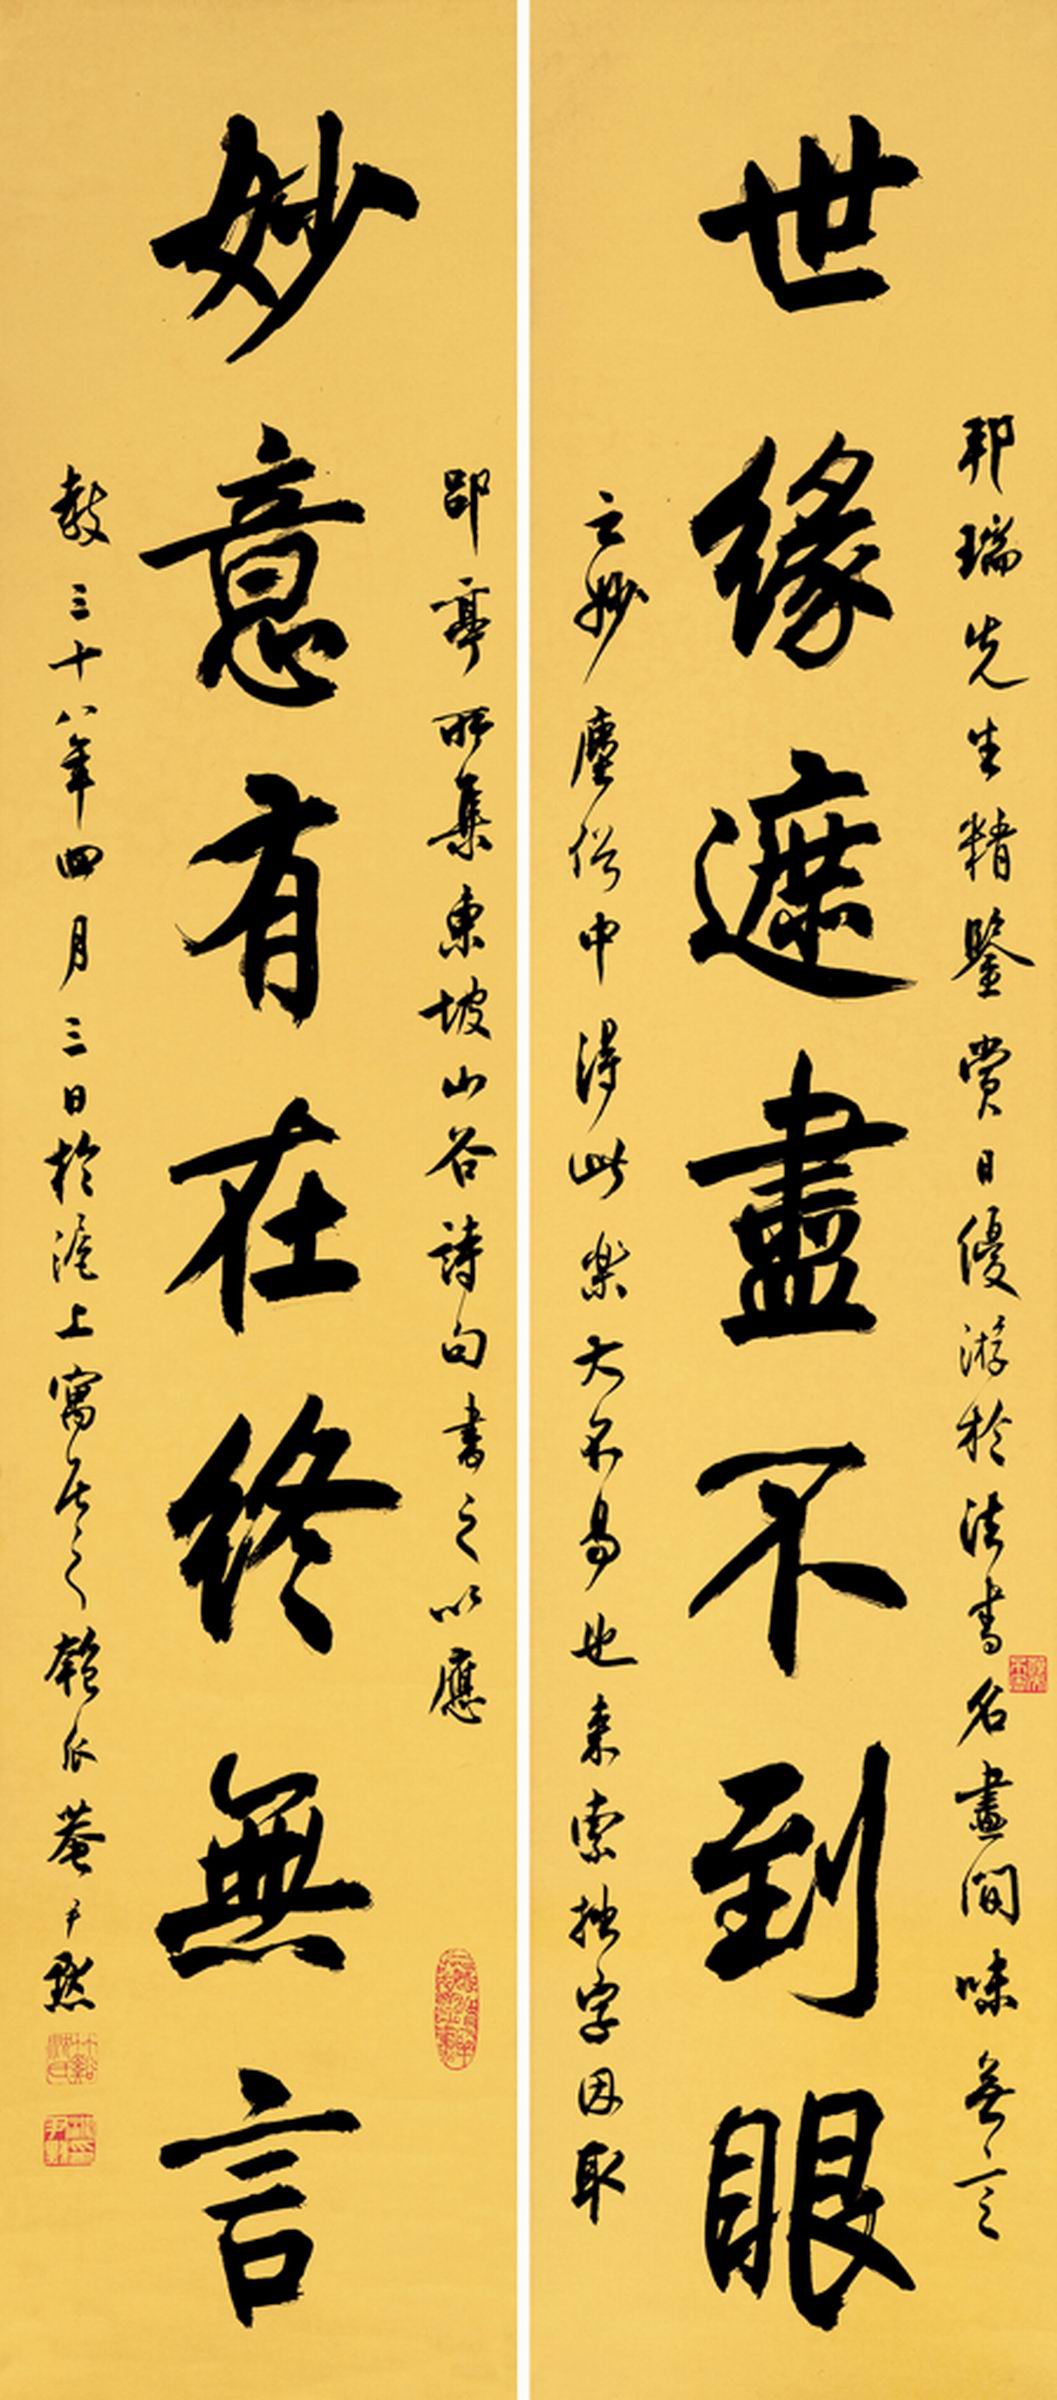 世緣遮盡不到眼
邦瑞先生精鑒賞日優游於法書名畫間味無言
之妙塵俗中得此樂大不易也来索拙字因取
妙意有在終無言
郘亭所集東坡山谷詩句書之以應
教三十八年四月三日於滬上寓居之匏瓜菴尹默